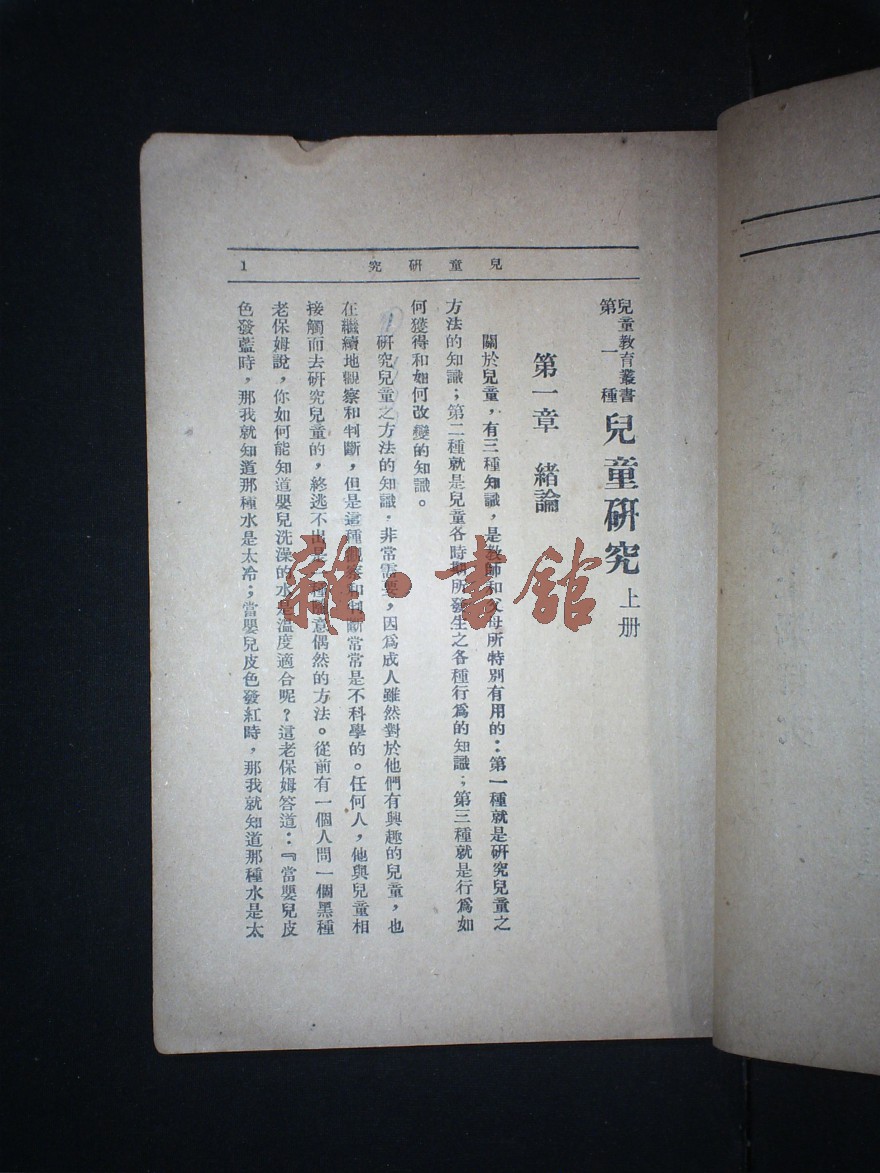 兒童研究
1
兒童教育叢書
第一種
兒童研究 上册
第一章 緒論
關於兒童，有三種知識，是教師和父母所特別有用的：第一種就是研究兒童之
方法的知識；第二種就是兒童各時期所發生之各種行爲的知識；第三種就是行爲如
何獲得和如何改變的知識。
研究兒童之方法的知識，非常需要，因爲成人雖然對於他們有興趣的兒童，也
在繼續地觀察和判斷，但是這種觀察和判斷常常是不科學的。任何人，他與兒童相
接觸而去研究兒童的，終逃不出是一種隨意偶然的方法。從前有一個人問一個黑種
老保姆說，你如何能知道嬰兒洗澡的水是溫度適合呢？這老保姆答道：『當嬰兒皮
色發藍時，那我就知道那種水是太冷；當嬰兒皮色發紅時，那我就知道那種水是太
雜·書館